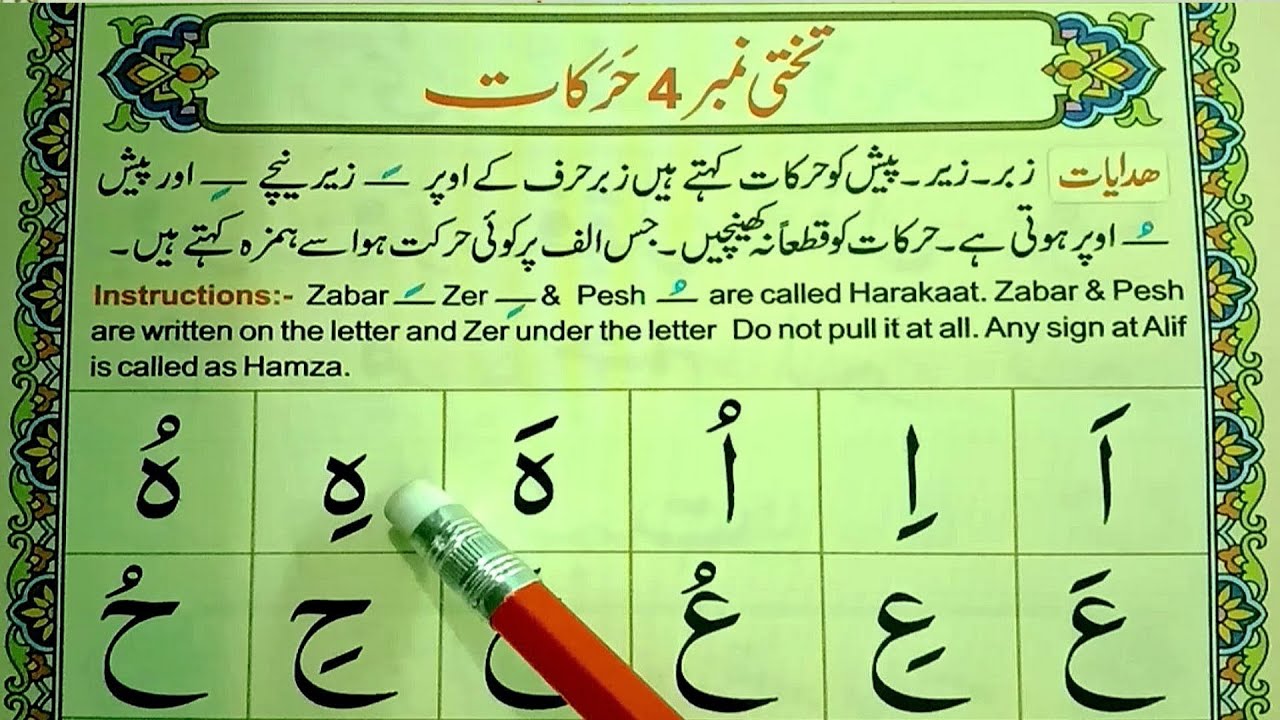 تختی نمبر 4 حَرَکات
ھدایات زبر۔ زیر۔ پیش کو حرکات کہتے ہیں زبر حرف کے اوپر ـَ زیر نیچے ـِ اور پیش
ـُ اوپر ہوتی ہے۔ حرکات کو قطعاً نہ کھینچیں۔ جس الف پر کوئی حرکت ہو اسے ہمزہ کہتے ہیں۔
Instructions:- Zabar ـَ Zer ـِ & Pesh ـُ are called Harakaat. Zabar & Pesh
are written on the letter and Zer under the letter Do not pull it at all. Any sign at Alif
is called as Hamza.
اَ اِ اُ هَ هِ هُ
عَ عِ عُ حِ حُ